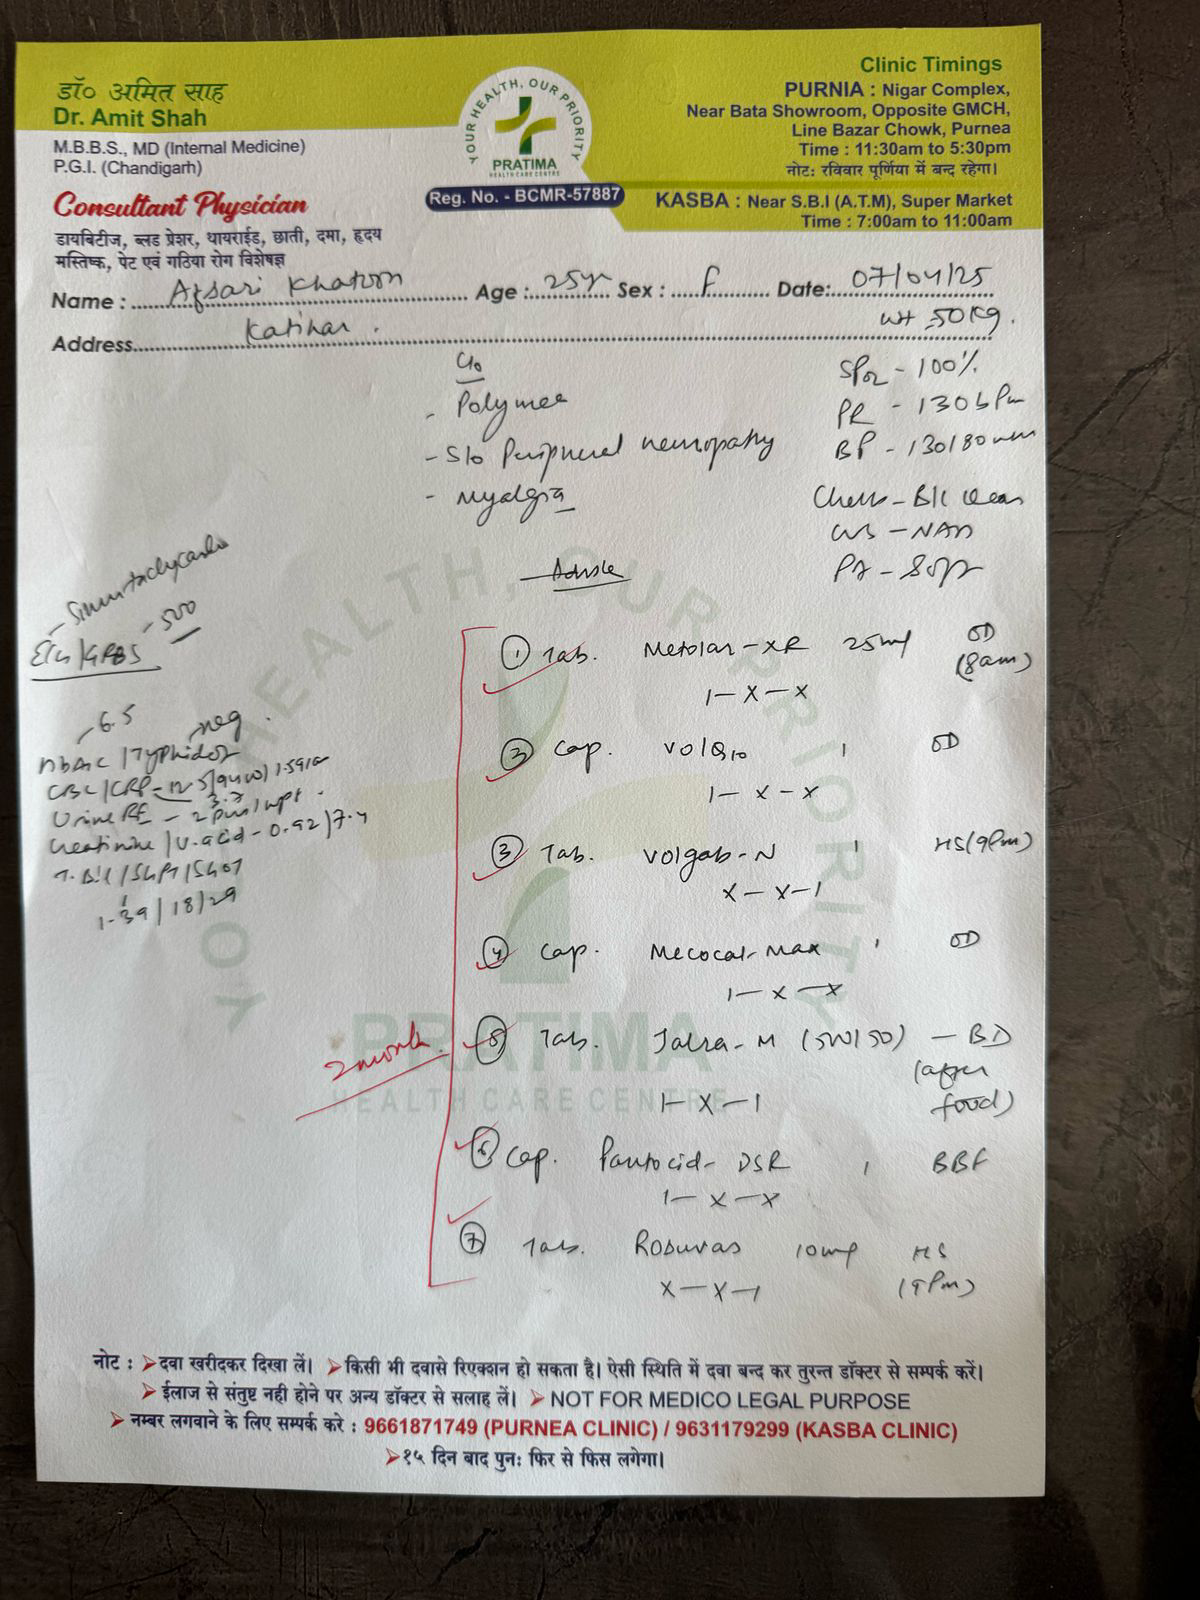 डॉ० अमित साह
Dr. Amit Shah
M.B.B.S., MD (Internal Medicine)
P.G.I. (Chandigarh)
Consultant Physician
डायबिटीज, ब्लड प्रेशर, थायराईड, छाती, दमा, हृदय
मस्तिष्क, पेट एवं गठिया रोग विशेषज्ञ
YOUR HEALTH, OUR PRIORITY
PRATIMA
HEALTH CARE CENTRE
Reg. No. - BCMR-57887
Clinic Timings
PURNIA : Nigar Complex,
Near Bata Showroom, Opposite GMCH,
Line Bazar Chowk, Purnea
Time : 11:30am to 5:30pm
नोट: रविवार पूर्णिया में बन्द रहेगा।
KASBA : Near S.B.I (A.T.M), Super Market
Time : 7:00am to 11:00am
Name : Afsari Khatoon Age : 25yr Sex : F Date: 07/04/25
Address Katihar .
wt 50kg.
C/o
SPO2 - 100%
- Polymee
PR - 130bPm
- S/o Peripheral neuropathy
BP - 130/80mm
- Myalgia
Chest - B/L Clear
CVS - NAD
Advice
PA - Soft
- Sinus tachycardia
ECG/GRBS - 500
- 6.5 neg.
HbA1c / Typhidot
CBC/CRP - 12.5/9400/1.59
3.7
Urine RE - 2 pus/hpf.
Creatinine / U.acid - 0.92/7.4
T. Bil / SGPT/SGOT
1.39/18/29
① Tab. Metolar-XR 25mg OD
(8am)
1 - x - x
② Cap. VolQ10 1 OD
1 - x - x
③ Tab. Volgab-N 1 HS(9Pm)
x - x - 1
④ Cap. Mecocal-Max 1 OD
1 - x - x
⑤ Tab. Jalra-M (500/50) - BD
(after food)
1 - x - 1
2 month
⑥ Cap. Pantocid-DSR 1 BBF
1 - x - x
⑦ Tab. Rosuvas 10mg HS
(9Pm)
x - x - 1
YOUR HEALTH, OUR PRIORITY
PRATIMA
HEALTH CARE CENTRE
नोट : ➤दवा खरीदकर दिखा लें। ➤किसी भी दवासे रिएक्शन हो सकता है। ऐसी स्थिति में दवा बन्द कर तुरन्त डॉक्टर से सम्पर्क करें।
➤ईलाज से संतुष्ट नही होने पर अन्य डॉक्टर से सलाह लें। ➤ NOT FOR MEDICO LEGAL PURPOSE
➤ नम्बर लगवाने के लिए सम्पर्क करे : 9661871749 (PURNEA CLINIC) / 9631179299 (KASBA CLINIC)
➤१५ दिन बाद पुनः फिर से फिस लगेगा।